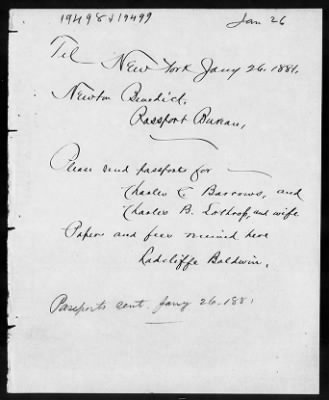 19498 & 19499
Jan 26
Tel
New York Jany 26. 1881.
Newton Benedict,
Passport Bureau,
Please send passport for —
Charles C Barrows, and
Charles B. Lothrop, and wife
Papers and fees received here
Radcliffe Baldwin.
Passports sent. Jany 26. 1881